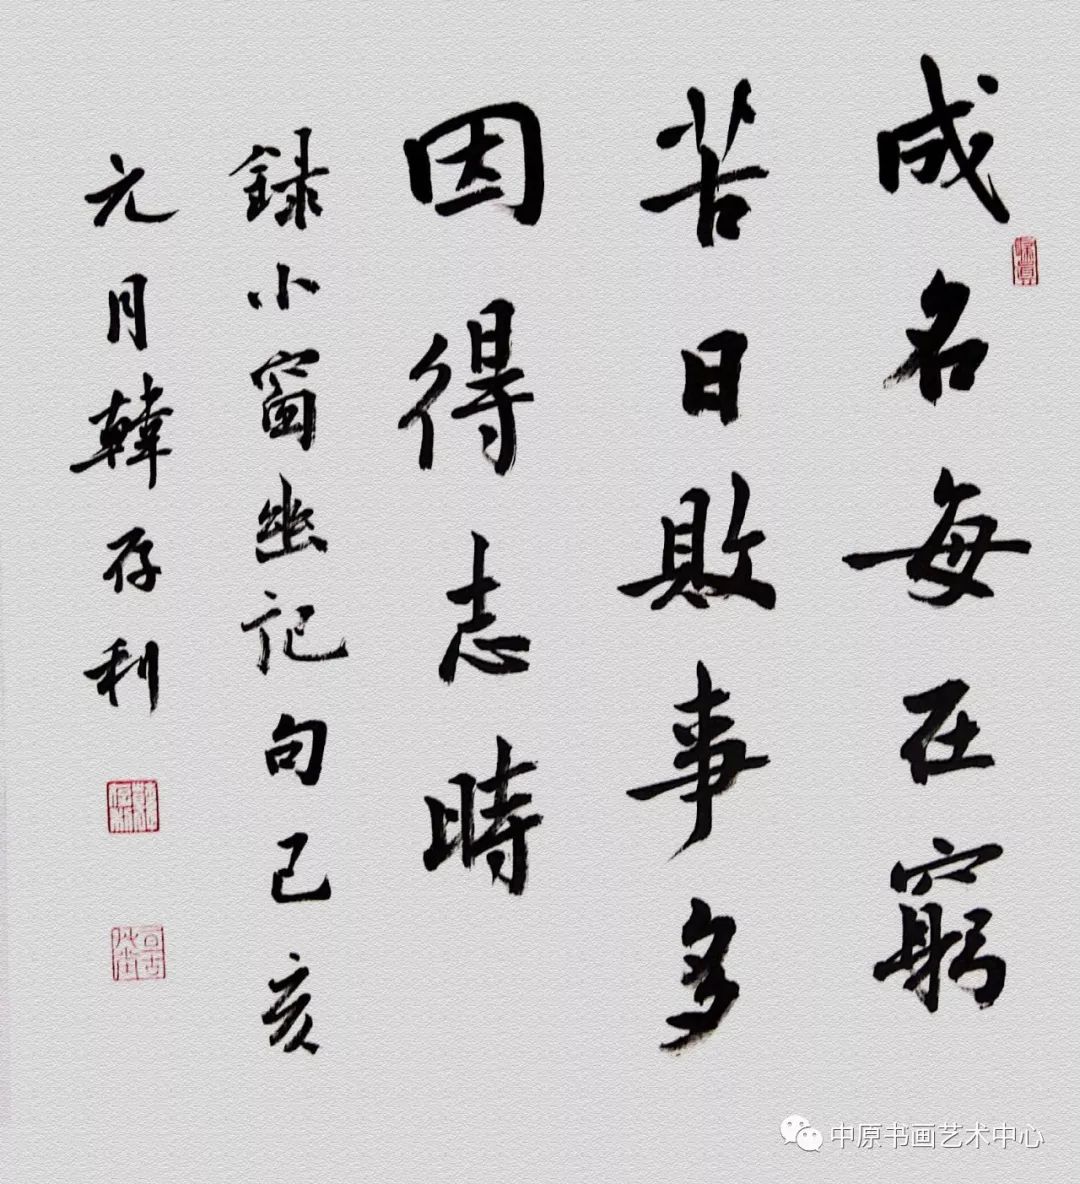 成名每在窮
苦日敗事多
因得志時
録小窗幽記句己亥
元月韓存利
中原书画艺术中心